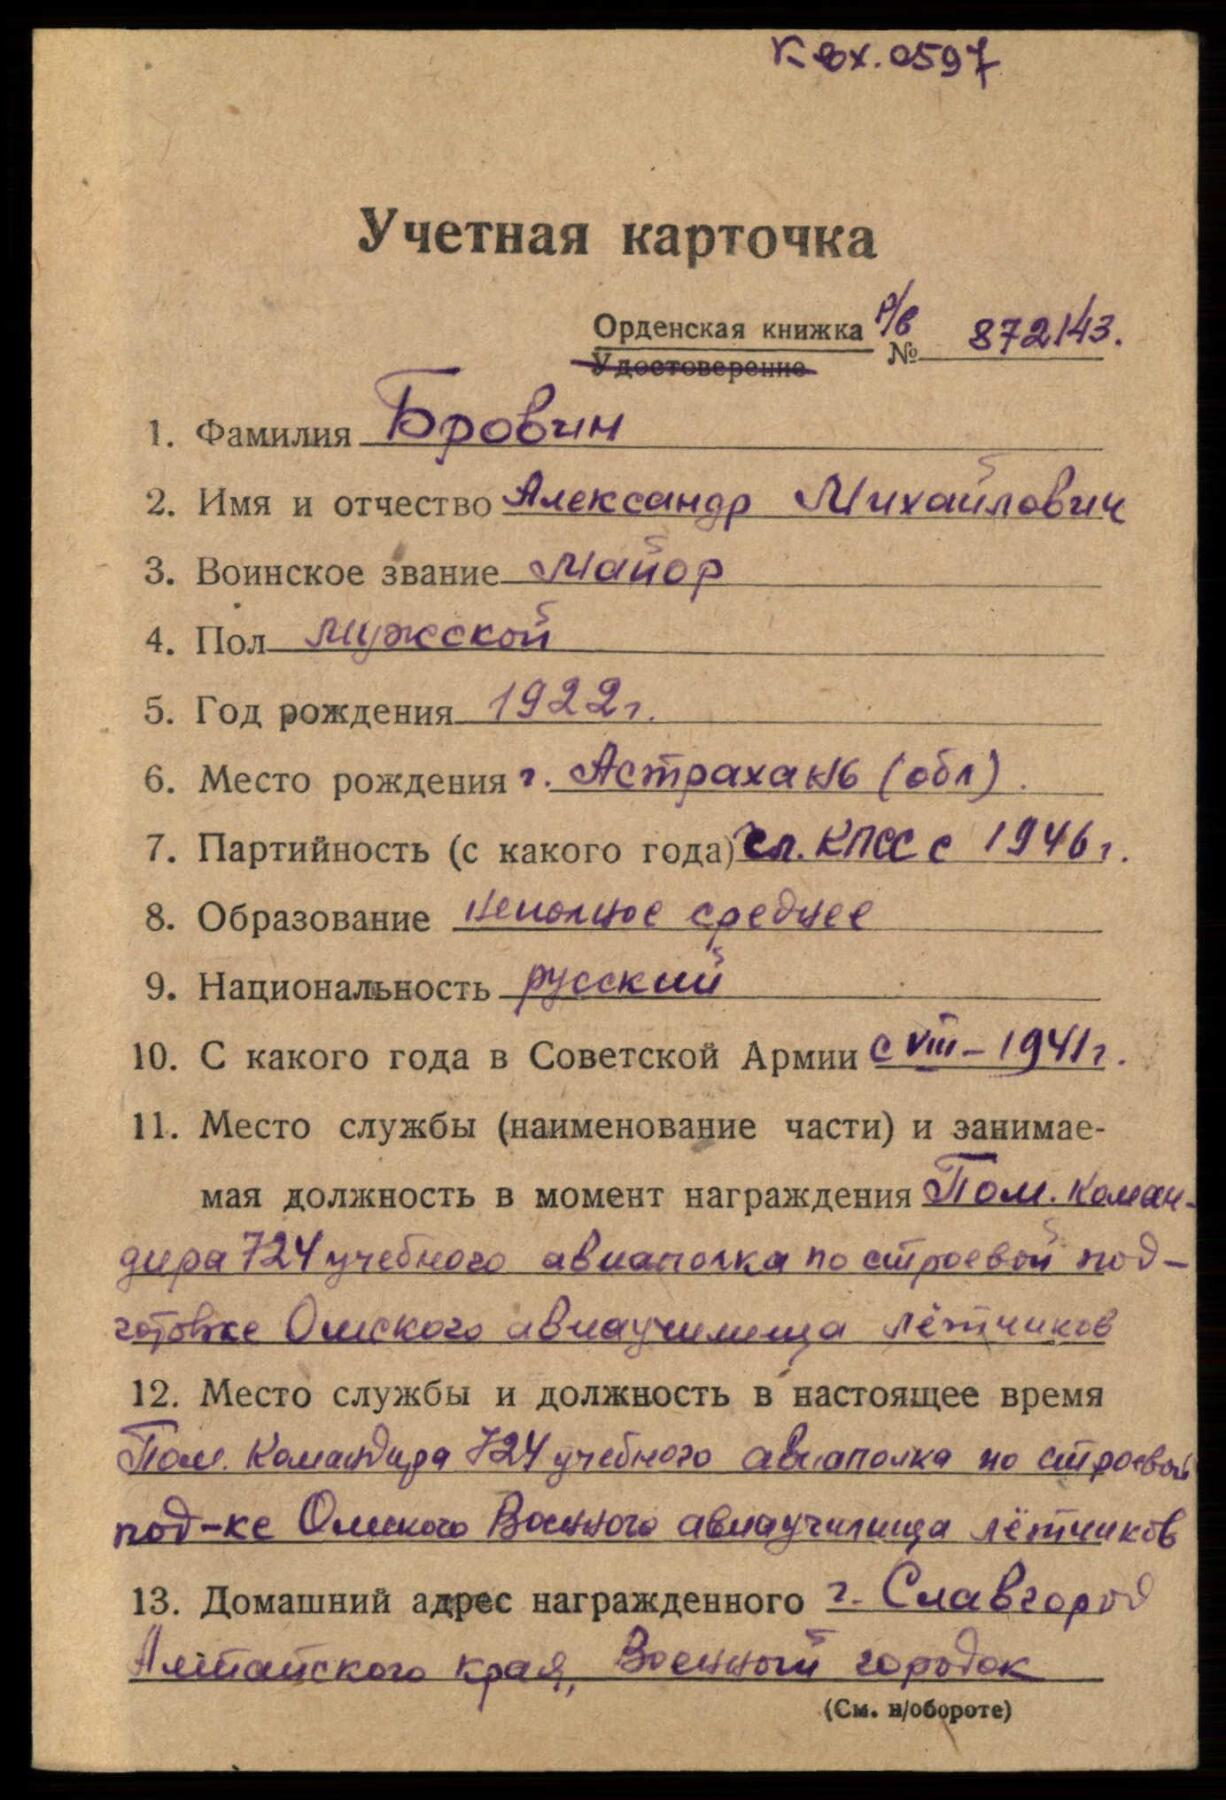 К вх. 0597
Учетная карточка
Орденская книжка р/в
Удостоверение № 872143.
1. Фамилия Бровин
2. Имя и отчество Александр Михайлович
3. Воинское звание Майор
4. Пол мужской
5. Год рождения 1922 г.
6. Место рождения г. Астрахань (обл).
7. Партийность (с какого года) чл. КПСС с 1946 г.
8. Образование неполное среднее
9. Национальность русский
10. С какого года в Советской Армии с VIII – 1941 г.
11. Место службы (наименование части) и занимае-
мая должность в момент награждения Пом. коман-
дира 724 учебного авиаполка по строевой под-
готовке Омского авиаучилища лётчиков
12. Место службы и должность в настоящее время
Пом. Командира 724 учебного авиаполка по строевой
под-ке Омского Военного авиаучилища лётчиков
13. Домашний адрес награжденного г. Славгород
Алтайского края, Военный городок
(См. н/обороте)